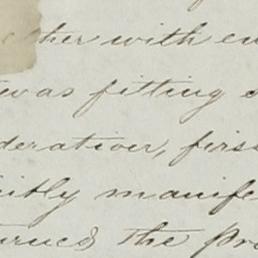 ther with en
was fitting
deration, firs
itly manife
the pro